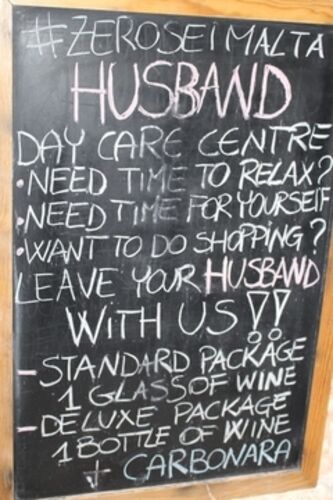 #ZEROSEIMALTA
HUSBAND
DAY CARE CENTRE
•NEED TIME TO RELAX?
•NEED TIME FOR YOURSELF
•WANT TO DO SHOPPING?
LEAVE YOUR HUSBAND
WITH US!!
-STANDARD PACKAGE
1 GLASS OF WINE
-DELUXE PACKAGE
1 BOTTLE OF WINE
+ CARBONARA